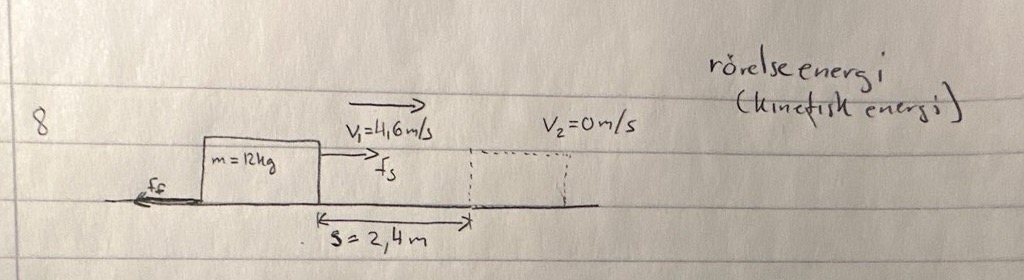 rörelseenergi
(kinetisk energi)
8
V₁=4,6m/s
V₂=0m/s
m=12kg
fs
ff
s=2,4m